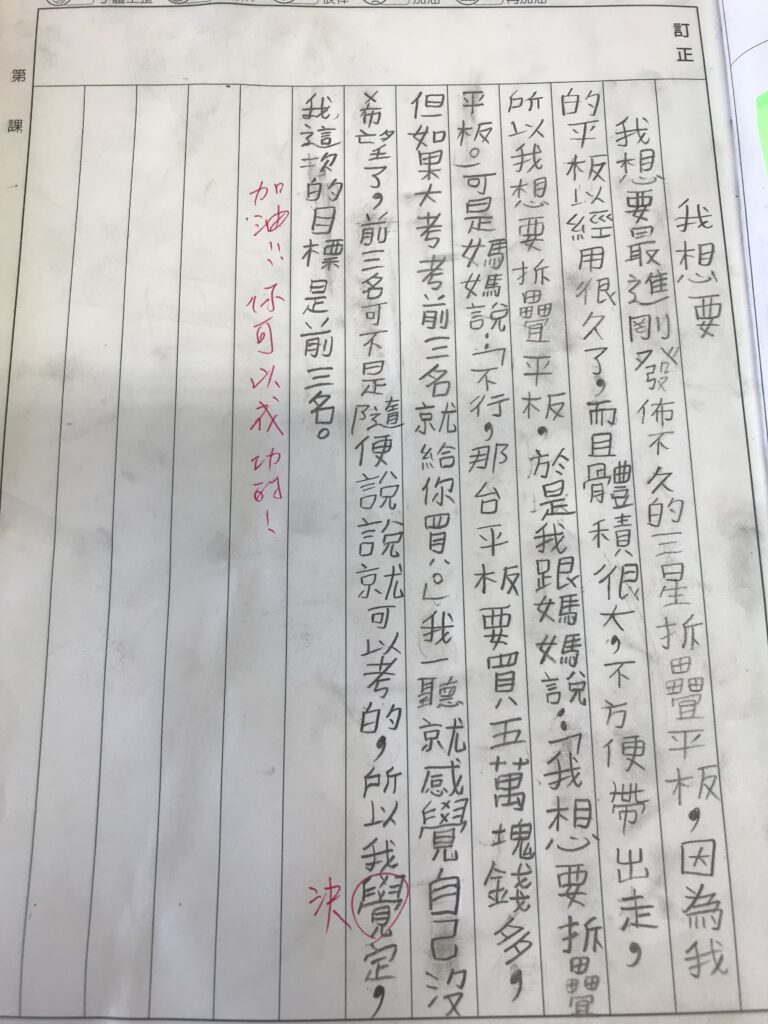 訂正
第 課
我想要
我想要最進剛發佈不久的三星拆疊平板，因為我
的平板以經用很久了，而且體積很大，不方便帶出走，
所以我想要拆疊平板，於是我跟媽媽說：「我想要拆疊
平板。」可是媽媽說：「不行，那台平板要買五萬塊錢多，
但如果大考考前三名就給你買。」我一聽就感覺自己沒
希望了，前三名可不是隨便說說就可以考的，所以我覺定，
決
我這次的目標是前三名。
加油!! 你可以成功的！